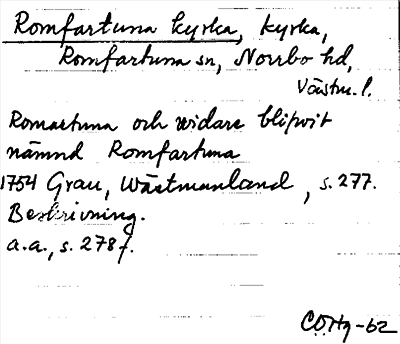 Romfartuna kyrka, kyrka,
Romfartuna sn, Norrbo hd,
Västm. l.
Romartuna och widare blifwit
nämnd Romfartuna
1754 Grau, Wästmanland, s. 277.
Beskrivning.
a.a., s. 278 f.
CÖHg-62